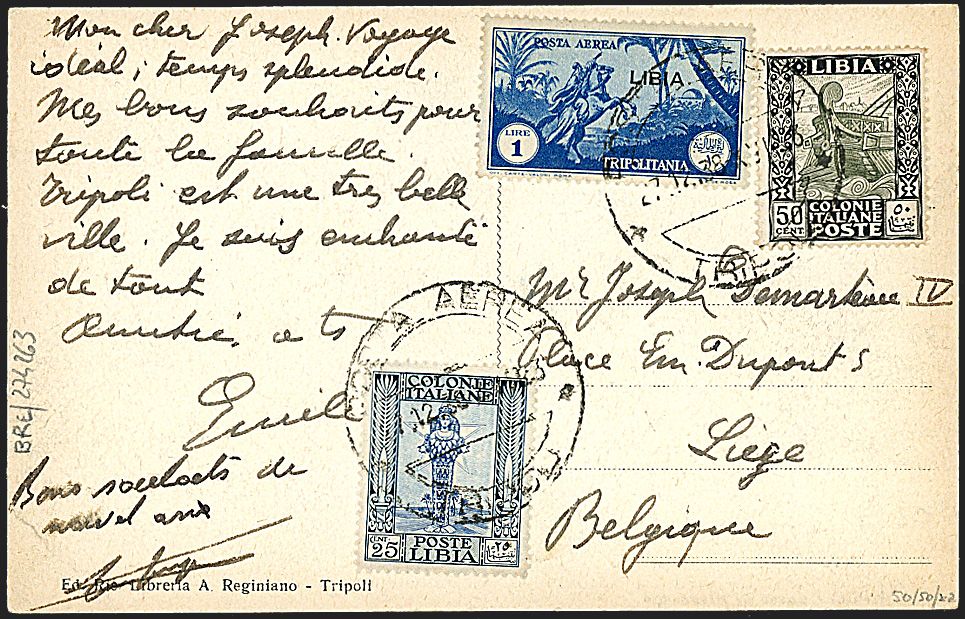 Mon cher Joseph. Voyage
idéal, temps splendide.
Mes bons souhaits pour
toute la famille.
Tripoli est une très belle
ville. Je suis enchanté
de tout
Amitié, a ts
Emile
Bons souhaits de
nouvel an
BRE/274263
Ed. Ris. Libreria A. Reginiano - Tripoli
POSTA AEREA
LIBIA
LIRE
1
TRIPOLITANIA
LIBIA
50
CENT
COLONIE
ITALIANE
POSTE
٥٠
27.12.38
TRIPOLI
Mr Joseph Demarteau IV
Place Em. Dupont 5
Liège
Belgique
POSTA AEREA
COLONIE
ITALIANE
CENT
25
POSTE
LIBIA
٢٥
50/50/22